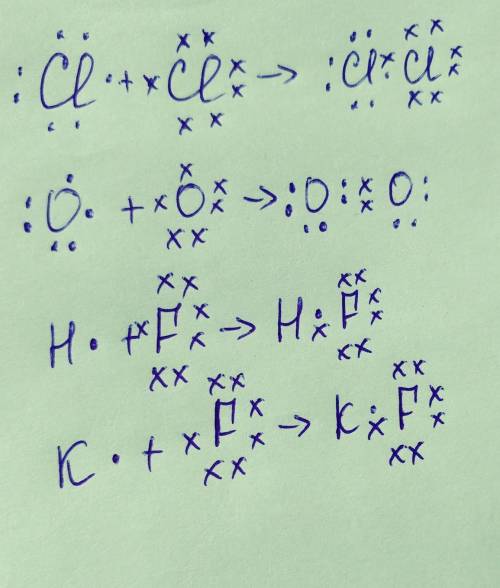 :Cl· + ×Cl×× → :Cl·×Cl××
:O· + ×O×× → :O:××O:
H· + ×F×× → H·×F××
K· + ×F×× → K·×F××